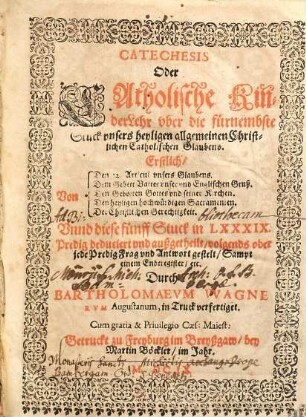 CATECHESIS
Oder
Catholische Kin-
derLehr vber die fürnembste
Stuck vnsers heyligen allgemeinen Christ-
lichen Catholischen Glaubens.
Erstlich/
Den 12. Articul vnsers Glaubens.
Dem Gebett Vatter vnser vnd Englischen Gruß.
Von Den Gebotten Gottes vnd seiner Kirchen.
Den heyligen hochwürdigen Sacramenten.
Der Christlichen Gerechtigkeit.
Vnnd diese fünff Stuck in LXXXIX.
Predig deduciert vnd außgetheilt, volgends vber
jede Predig Frag vnd Antwort gestelt/ Sampt
einem Endregister/ etc.
Durch
BARTHOLOMAEVM WAGNE
RVM Augustanum, in Truck verfertiget.
Cum gratia & Priuilegio Cæs: Maiest:
Getruckt zu Freyburg im Breyßgaw/ bey
Martin Böckler/ im Jahr.